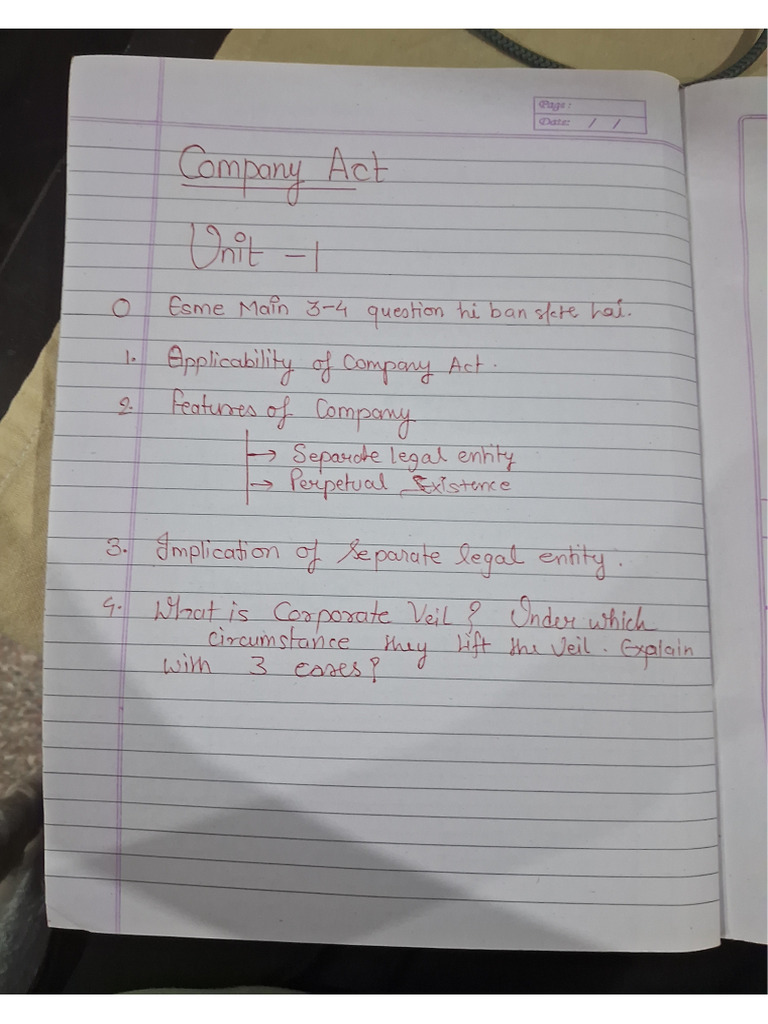 Page:
Date: / /
Company Act
Unit - 1
0 Esme Main 3-4 question hi ban skte hai.
1. Applicability of Company Act.
2. Features of Company
→ Separate legal entity
→ Perpetual Existence
3. Implication of Separate legal entity.
4. What is Corporate Veil? Under which
circumstance they lift the Veil. Explain
with 3 cases?